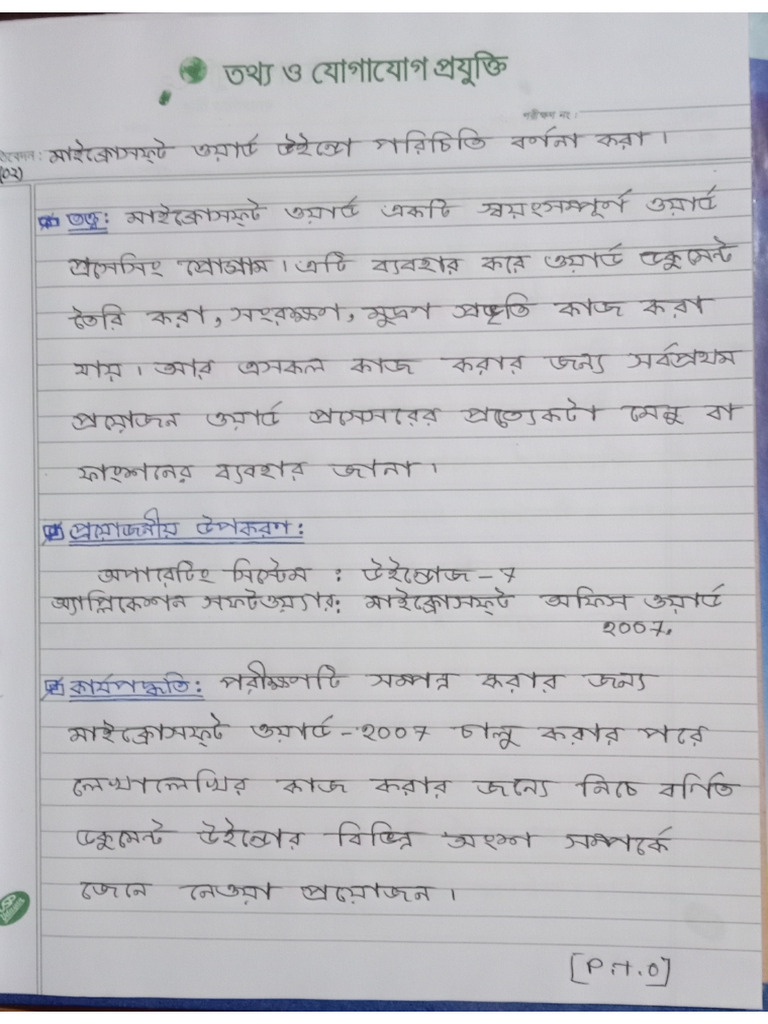 তথ্য ও যোগাযোগ প্রযুক্তি
পরীক্ষণ নং :
মাইক্রোসফ্ট ওয়ার্ড উইন্ডো পরিচিতি বর্ণনা করা।
(০২)
তত্ত্ব: মাইক্রোসফ্ট ওয়ার্ড একটি স্বয়ংসম্পূর্ণ ওয়ার্ড
প্রসেসিং প্রোগ্রাম। এটি ব্যবহার করে ওয়ার্ড ডকুমেন্ট
তৈরি করা, সংরক্ষণ, মুদ্রণ প্রভৃতি কাজ করা
যায়। আর এসকল কাজ করার জন্য সর্বপ্রথম
প্রয়োজন ওয়ার্ড প্রসেসরের প্রত্যেকটা মেনু বা
ফাংশনের ব্যবহার জানা।
প্রয়োজনীয় উপকরণ:
অপারেটিং সিস্টেম : উইন্ডোজ-৭
অ্যাপ্লিকেশন সফটওয়্যার: মাইক্রোসফ্ট অফিস ওয়ার্ড
২০০৭.
কার্যপদ্ধতি: পরীক্ষণটি সম্পন্ন করার জন্য
মাইক্রোসফ্ট ওয়ার্ড-২০০৭ চালু করার পরে
লেখালেখির কাজ করার জন্যে নিচে বর্ণিত
ডকুমেন্ট উইন্ডোর বিভিন্ন অংশ সম্পর্কে
জেনে নেওয়া প্রয়োজন।
[P.T.O]